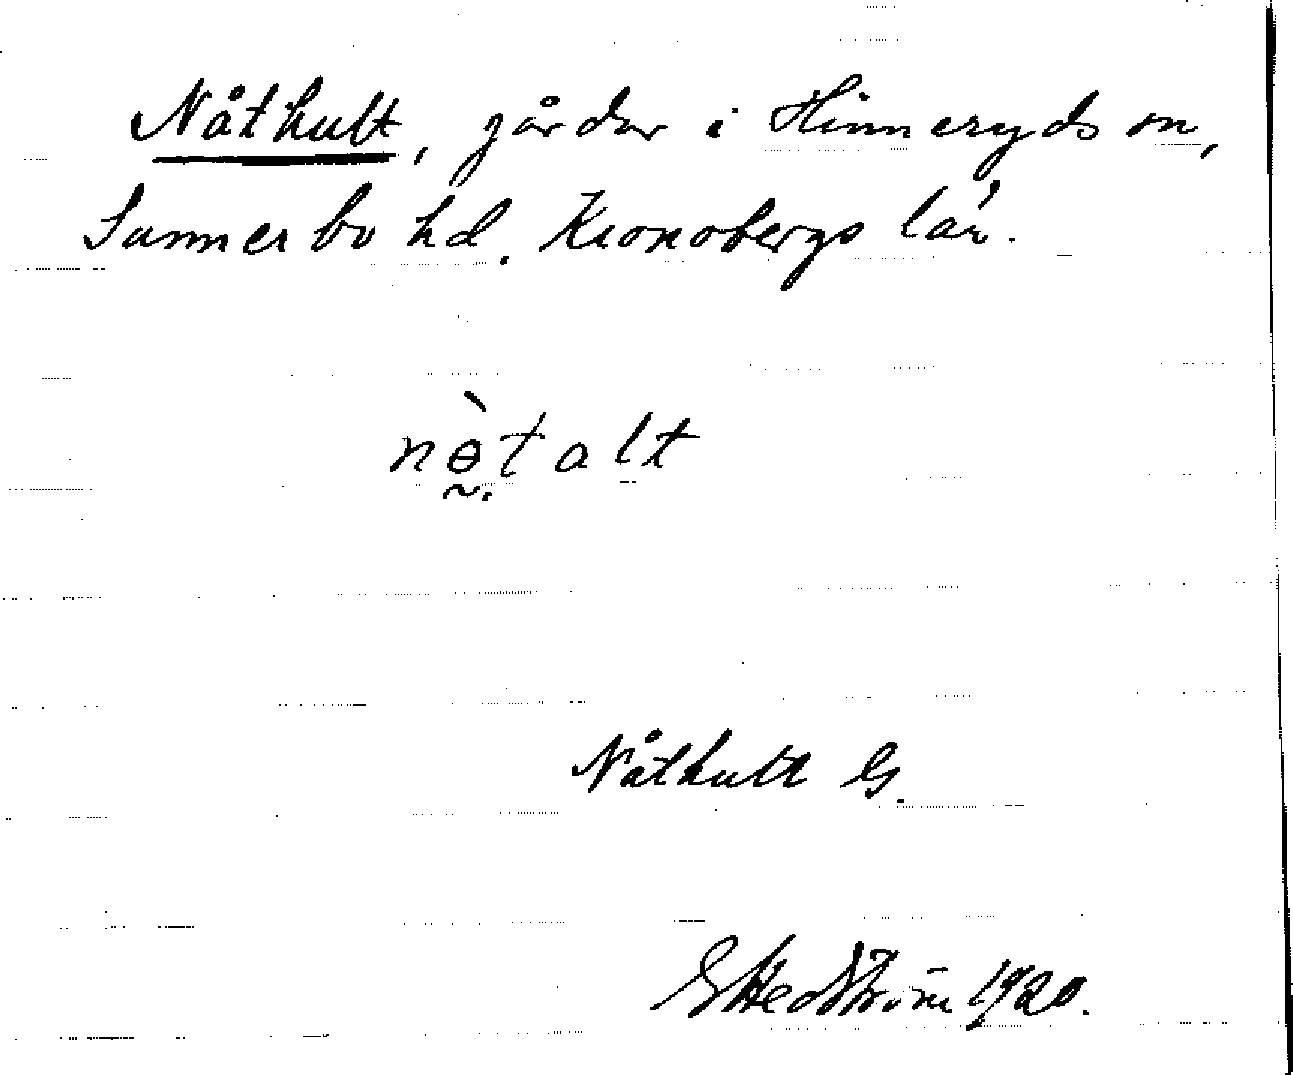 Nåthult, gårdar i Hinneryds sn,
Sunnerbo hd. Kronobergs län.
nɵ̀talt
Nåthult G.
G Hedström 1920.